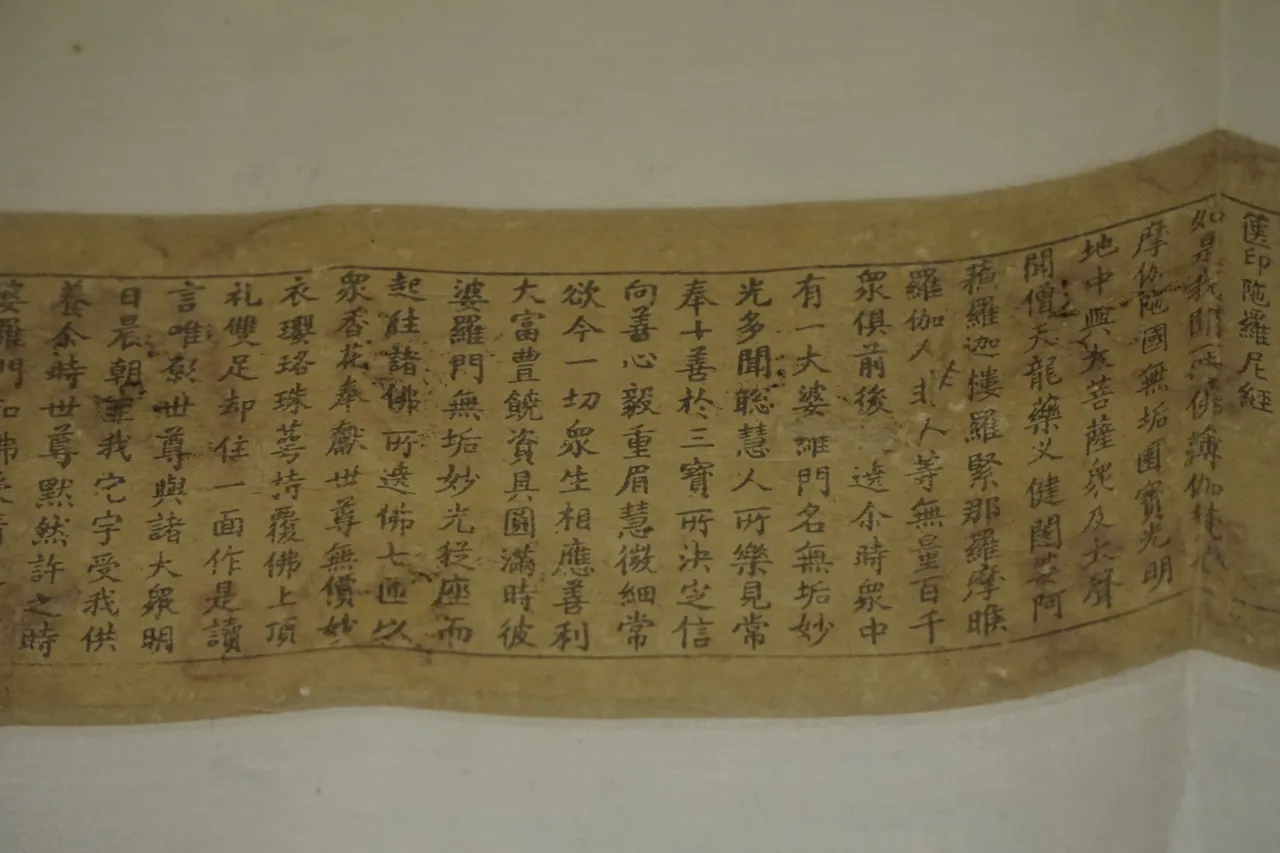 篋印陁羅尼經
如是我聞一時佛薄伽梵在
摩伽陁國無垢園寶光明
地中與大菩薩衆及大聲
聞僧天龍藥叉健闥婆阿
蘓羅迦樓羅緊那羅摩睺
羅伽人非人等無量百千
衆俱前後遶尒時衆中
有一大婆羅門名無垢妙
光多聞聡慧人所樂見常
奉十善於三寶所決定信
向善心毅重眉慧微細常
欲今一切衆生相應善利
大富豊饒資具圓滿時彼
婆羅門無垢妙光從座而
起往諸佛所遶佛七迊以
衆香花奉獻世尊無價妙
衣瓔珞珠鬘持覆佛上頂
礼雙足却住一面作是讀
言唯願世尊與諸大衆明
日晨朝至我宅宇受我供
養尒時世尊默然許之時
婆羅門知佛受請